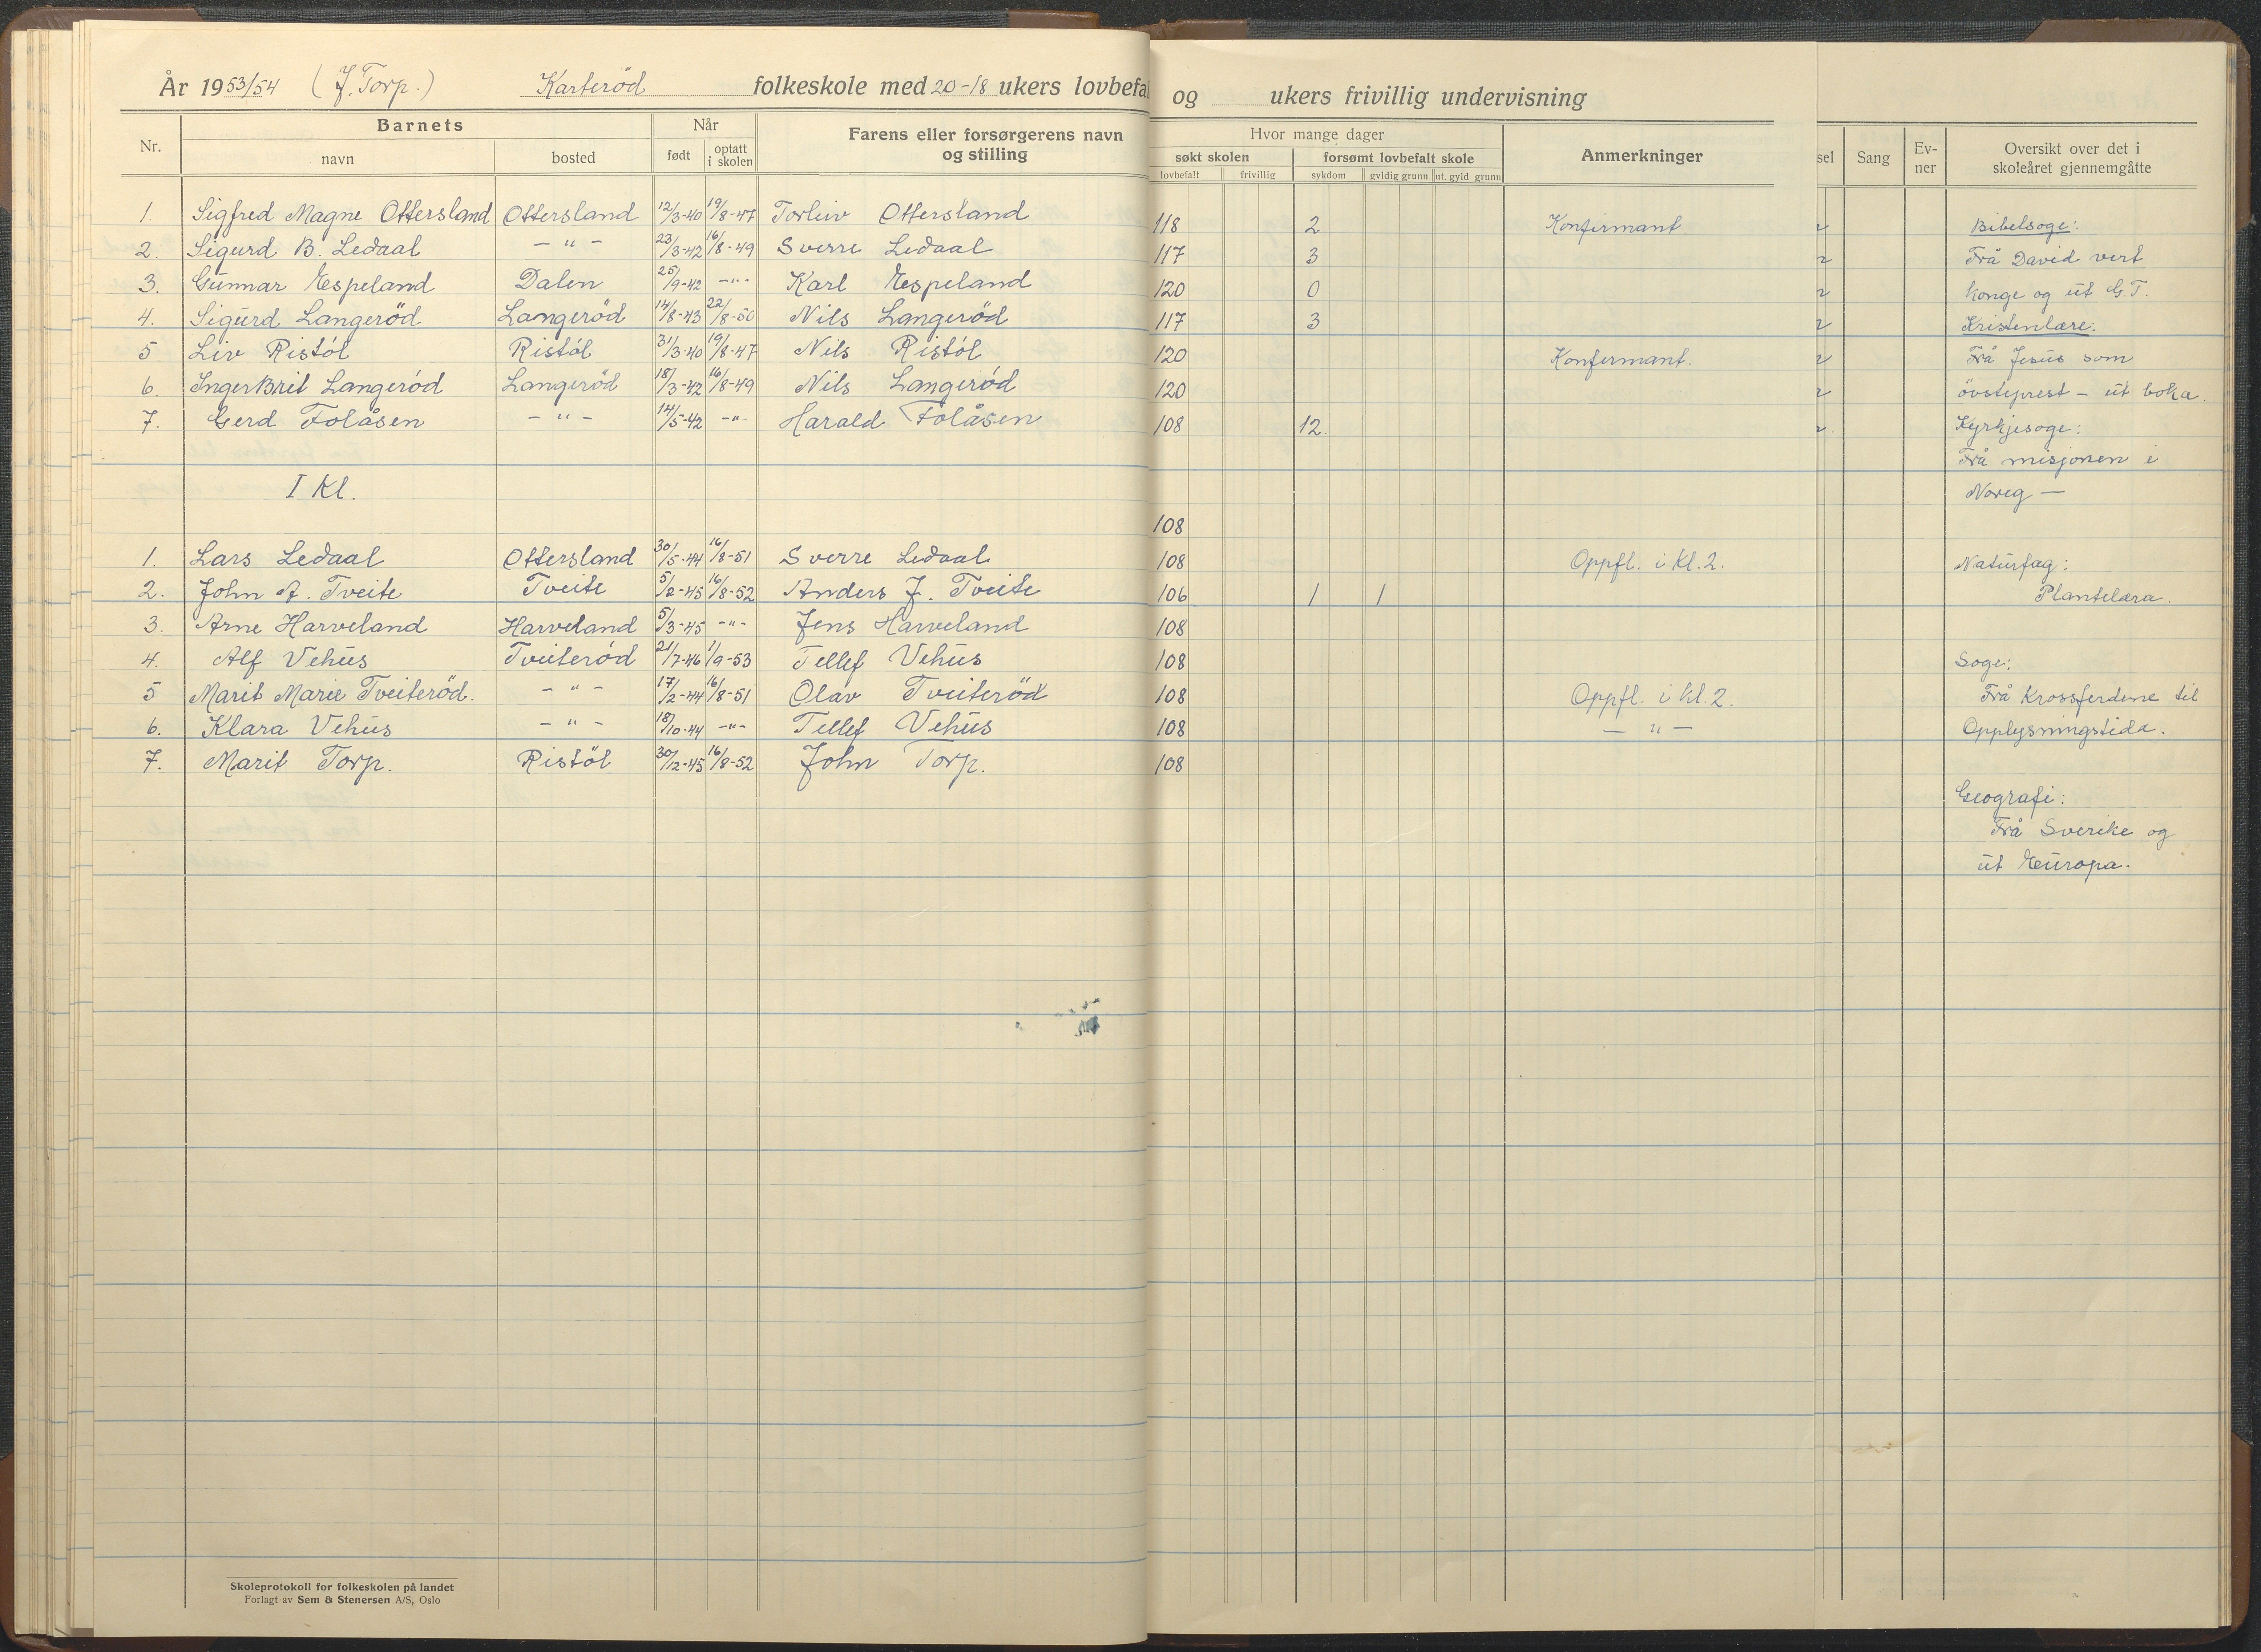 År 1953/54 (J. Torp.) Karteröd folkeskole med 20-18 ukers lovbefa og ukers frivillig undervisning
Nr. Barnets Når Farens eller forsørgerens navn og stilling Hvor mange dager Anmerkninger sel Sang Ev-ner Oversikt over det i skoleåret gjennemgåtte
navn bosted født optatt i skolen søkt skolen forsømt lovbefalt skole
lovbefalt frivillig sykdom gyldig grunn ut. gyld grunn
1. Sigfred Magne Ottersland Ottersland 12/3-40 19/8-47 Torleiv Ottersland 118 2 Konfirmant 2 Bibelsoge:
2. Sigurd B. Ledaal - " - 23/3-42 16/8-49 Sverre Ledaal 117 3 2 Frå David vert
3. Gunnar Espeland Dalen 25/9-42 - " - Karl Espeland 120 0 2 konge og ut G.T.
4. Sigurd Langeröd Langeröd 14/8-43 22/8-50 Nils Langeröd 117 3 2 Kristenlære.
5 Liv Ristöl Ristöl 31/3-40 19/8-47 Nils Ristöl 120 Konfermant. 2 Frå Jesus som
6. Inger Brit Langeröd Langeröd 18/3-42 16/8-49 Nils Langeröd 120 2 övsteprest - ut boka.
7. Gerd Folåsen - " - 14/5-42 - " - Harald Folåsen 108 12. 2. Kyrkjesoge:
Frå misjonen i
I Kl. Noreg —
108
1. Lars Ledaal Ottersland 30/5-44 16/8-51 Sverre Ledaal 108 Oppfl. i Kl. 2. Naturfag:
2. John A. Tveite Tveite 5/2-45 16/8-52 Anders J. Tveite 106 1 1 Plantelæra.
3. Arne Harveland Harveland 5/3-45 - " - Jens Harveland 108
4. Alf Vehus Tveiteröd 21/7-46 1/9-53 Tellef Vehus 108 Soge:
5 Marit Marie Tveiteröd. - " - 17/2-44 16/8-51 Olav Tveiteröd 108 Oppfl. i Kl. 2. Frå Krossferdene til
6. Klara Vehus - " - 18/10-44 - " - Tellef Vehus 108 - " - Opplysningstida.
7. Marit Torp. Ristöl 30/12-45 16/8-52 John Torp. 108
Geografi:
Frå Sverike og
ut Europa.
Skoleprotokoll for folkeskolen på landet
Forlagt av Sem & Stenersen A/S, Oslo